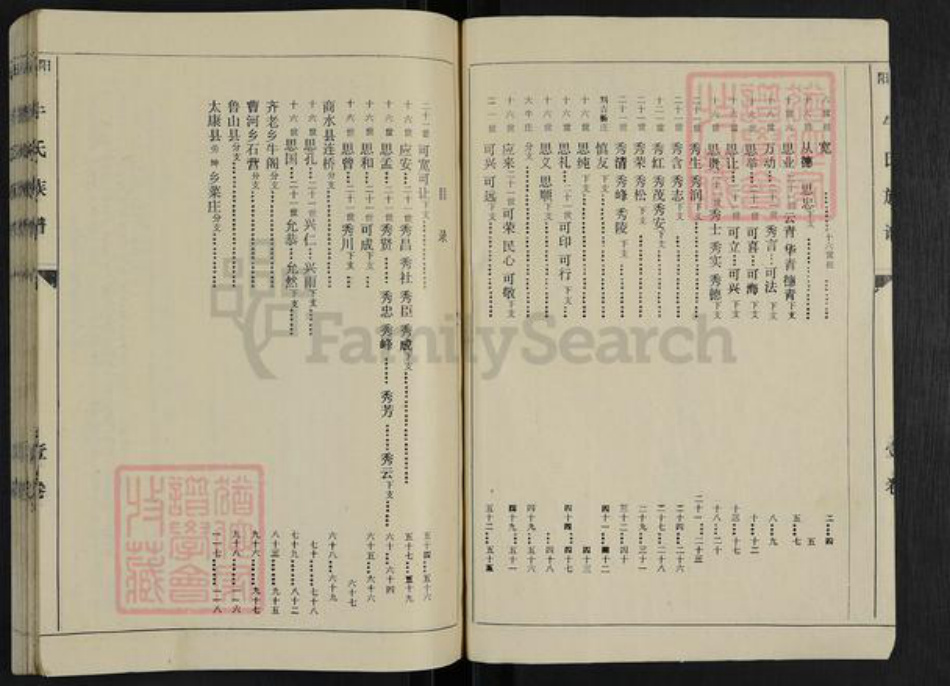 宽……十六世祖……二…四
从德 思忠下支……五
思业 二十一世 云青 华青 德青下支 五…七
万动……秀言…可法 下支 八…九
思举……可喜…可海 下支 十…十二
思让……可立…可兴 下支 十三…十七
思贵 秀士 秀实 秀德下支 十八…二十
秀生 秀润下支……二十一…二十三
秀含 秀志下支……二十四…二十六
二十一世 秀红 秀茂 秀安下支 二十七…二十八
二十一世 秀荣 秀松 下支…… 二十九…三十一
二十一世 秀清 秀峰 秀陵 下支…… 三十二…四十
慎友 下支……四十一…四十二
十六世 思纯 下支……四十三
十六世 思礼……二十一世 可印 可行 下支…… 四十四…四十七
十六世 思义 思顺下支……四十八
大牛庄 分支……四十九…五十六
十六世 应来 二十一世 可荣 民心 可敬下支 四十九…五十一
二十一世 可兴 可远下支……五十二…五十五
目录
二十一世 可宽 可让下支……五十四…五十六
十六世 应安……二十一世 秀昌 秀社 秀臣 秀成下支……五十七…五十九
十六世 思孟……二十一世 秀贤……秀忠 秀峰……秀芳……秀云下支……六十…六十四
十六世 思和……二十一世 可成下支…… 六十五…六十六
十六世 思曾……二十一世 秀川下支…… 六十七
商水县连桥分支……六十八…六十九
十六世 思孔…二十一世 兴仁…兴雨下支…… 七十…七十八
十六世 思国…二十一世 允恭…允然下支…… 七十九……八十二
齐老乡牛阁分支……八十三……九十五
曹河乡石营分支……九十六……九十七
鲁山县分支……九十八……一一六
太康县 乡菜庄分支……一一七……一一八
牛氏族谱
壹卷
FamilySearch